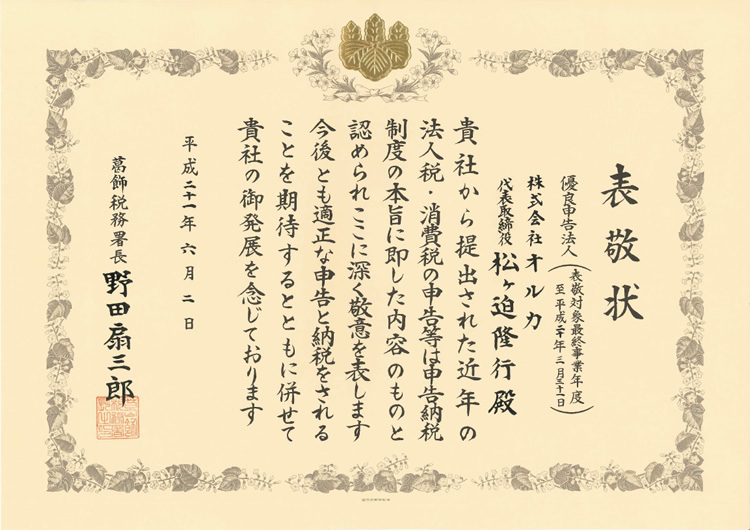 表敬状
優良申告法人(表敬対象最終事業年度
至平成二十年三月三十一日)
株式会社オルカ
代表取締役 松ヶ迫隆行殿
貴社から提出された近年の
法人税・消費税の申告等は申告納税
制度の本旨に即した内容のものと
認められここに深く敬意を表します
今後とも適正な申告と納税をされる
ことを期待するとともに併せて
貴社の御発展を念じております
平成二十一年六月二日
葛飾税務署長 野田扇三郎